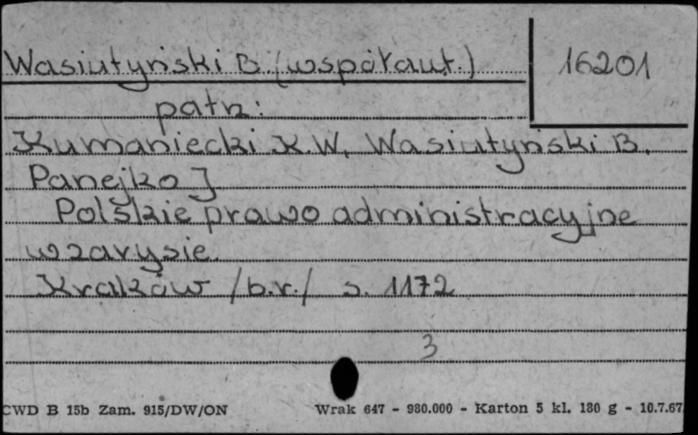 Wasiutyński B. (współaut.)
16201
patrz:
Kumaniecki K.W, Wasiutyński B.
Panejko J
Polskie prawo administracyjne
w zarysie.
Kraków /b.r./ s. 1172
3
CWD B 15b Zam. 915/DW/ON
Wrak 647 - 980.000 - Karton 5 kl. 180 g - 10.7.67